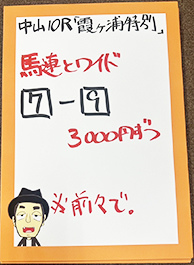 中山10R「霞ヶ浦特別」
馬連とワイド
7-9
3000円ずつ
※前々で。